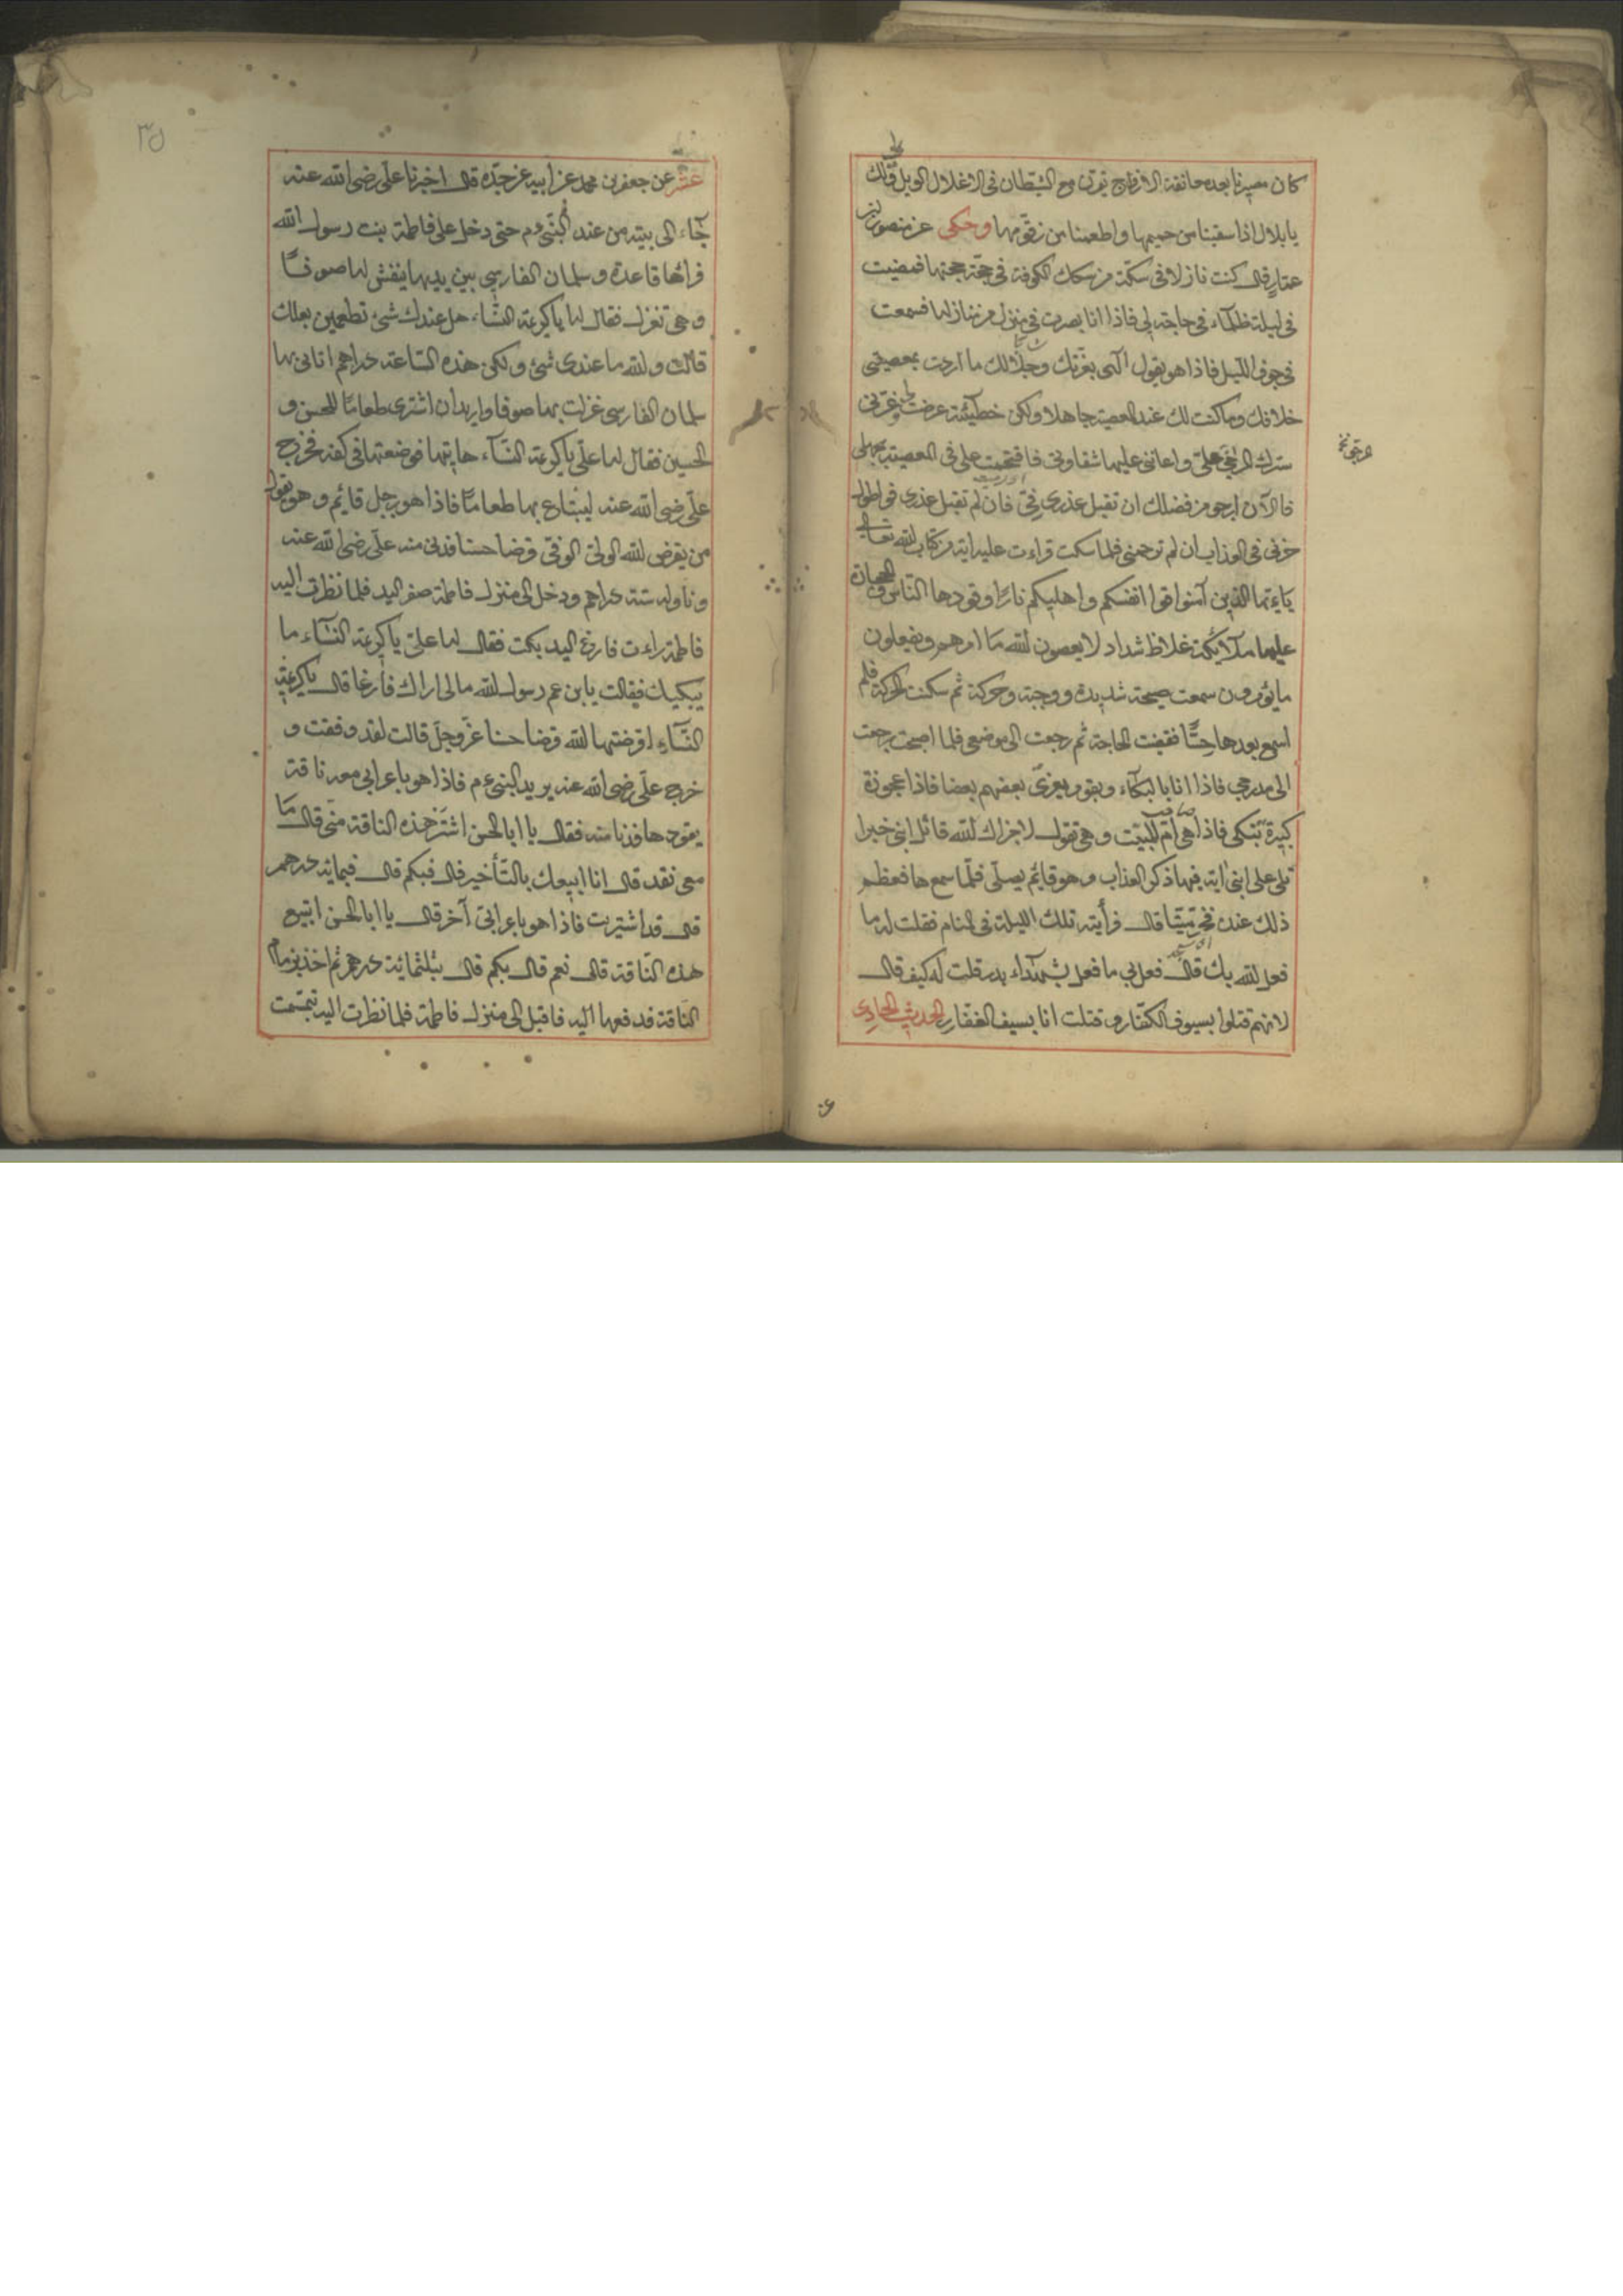 كان مصيرنا بعده معانقة الازواج يقرن مع الشيطان في الاغلال الويل لك
يا بلال اذا سقينا من حميمها واطعمنا من زقومها وحكى عن منصور بن
عمار قال كنت نازلا في سكة من سكك الكوفة في حجة حججتها فمضيت
في ليلة ظلماء في حاجة لي فاذا انا بصوت في منزل من منازلها فسمعت
في جوف الليل فاذا هو يقول الهى بعزتك وجلالك ما اردت بمعصيتي
خلافك وما كنت لك عند المعصية جاهلا ولكن خطيئة عرضت لي وغرني
سترك المرخى على واعانني عليها شقاوتي فاقتحمت على في المعصية بجهلي
المرخى نخ
فالآن ارجو من فضلك ان تقبل عذري فان لم تقبل عذري فواطول
حزني في العذاب ان لم ترحمني فلما سكت قراءت عليه اية من كتاب الله تعالى
يايها الذين آمنوا قوا انفسكم واهليكم نارا وقودها الناس والحجارة
عليها ملائكة غلاظ شداد لا يعصون الله ما امرهم ويفعلون
ما يؤمرون سمعت صيحة شديدة ووجبة وحركة ثم سكنت الحركة فلم
اسمع بعدها حسا فقضيت الحاجة ثم رجعت الى موضعي فلما اصبحت رجعت
الى مدرجي فاذا انا بالبكاء وبقوم يعزي بعضهم بعضا فاذا عجوزة
كبيرة تبكى فاذا هي ام الميت وهي تقول لا جزاك الله قاتل ابني خيرا
تلى على ابني اية فيها ذكر العذاب وهو قايم يصلى فلما سمعها فعظم
ذلك عنده فخر ميتا قال فرأيته تلك الليلة في المنام فقلت له ما
فعل الله بك قال فعل بي ما فعل بشهداء بدر قلت له كيف قال
لانهم قتلوا بسيوف الكفار وقتلت انا بسيف الغفار الحديث الحادى
٣٥
عشر عن جعفر بن محمد عن ابيه عن جده قال اخبرنا على رضي الله عنه
جاء الى بيته من عند النبي عم حتى دخل على فاطمة بنت رسول الله
فراها قاعدة وسلمان الفارسي بين يديها ينفش لها صوفا
وهي تغزل فقال لها ياكريمة النساء هل عندك شئ تطعمين بعلك
قالت والله ما عندي شئ ولكن هذه الساعة دراهم اتاني بها
سلمان الفارسي غزلت بها صوفا واريد ان اشترى طعاما للحسن و
الحسين فقال لها على ياكريمة النساء هاتيها فوضعتها في كفه فخرج
على رضي الله عنه ليبتاع بها طعاما فاذا هو برجل قايم وهو يقول
من يقرض الله الولي الوفي قرضا حسنا فدنى منه على رضي الله عنه
وناوله ستة دراهم ودخل الى منزل فاطمة صفر اليد فلما نظرت اليه
فاطمة راءت فارغ اليد بكت فقال لها على ياكريمة النساء ما
يبكيك فقالت يابن عم رسول الله مالى اراك فارغا قال ياكريمة
النساء اقرضتها لله قرضا حسنا عز وجل قالت لقد وفقت و
خرج على رضي الله عنه يريد النبي عم فاذا هو باعرابي معه ناقة
يقودها فدنا منه فقال يا ابا الحسن اشتر هذه الناقة مني قال ما
معي نقد قال انا ابيعك بالتأخير قال فبكم قال فبمائة درهم
قال قد اشتريت فاذا هو باعرابي آخر قال يا ابا الحسن ابتيع
هذه الناقة قال نعم قال بكم قال بثلثمائة درهم ثم اخذ بزمام
الناقة فدفعها اليه فاقبل الى منزل فاطمة فلما نظرت اليه تبسمت